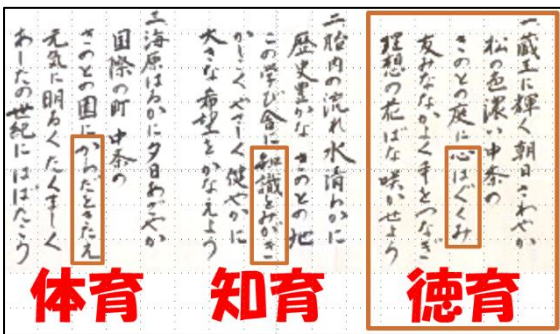 一 蔵王に輝く朝日さわやか
松の色濃い中条の
きのとの庭に心はぐくみ
友みななかよく手をつなぎ
理想の花ばな咲かせよう
二 胎内の流れ水清らかに
歴史豊かなきのとの地
この学び舎に知識をみがき
かしこくやさしく健やかに
大きな希望をかなえよう
三 海原はるかに夕日あざやか
国際の町 中条の
きのとの園にからだをきたえ
元気に明るくたくましく
あしたの世紀にはばたこう
徳育
知育
体育